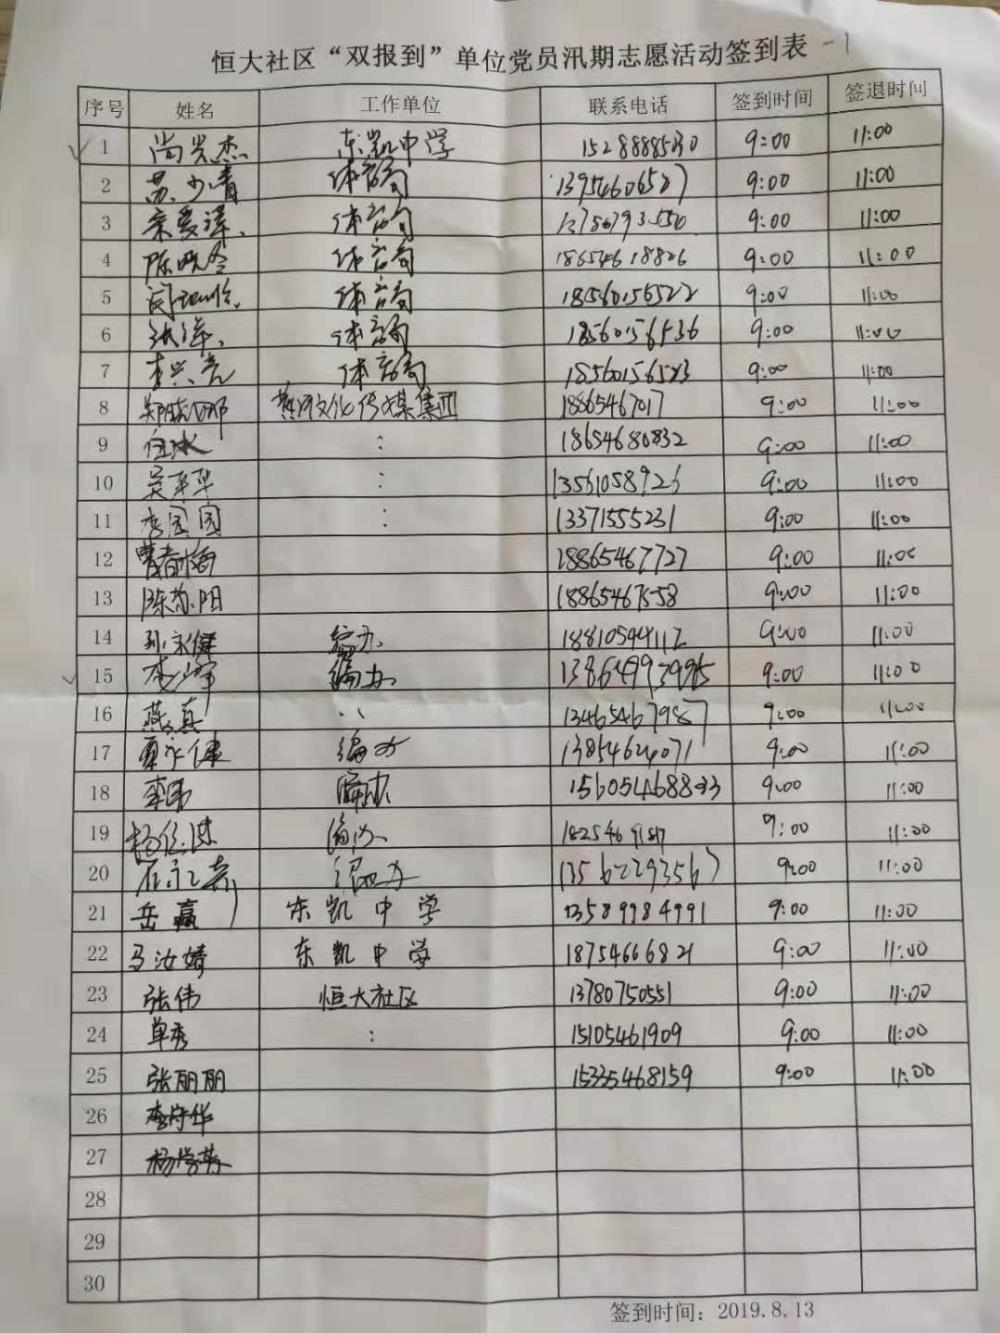 恒大社区“双报到”单位党员汛期志愿活动签到表 -1
序号 姓名 工作单位 联系电话 签到时间 签退时间
1 尚兴杰 东凯中学 15288885030 9:00 11:00
2 苏少青 体育局 13954606527 9:00 11:00
3 体育局 9:00 11:00
4 陈晓令 体育局 18654618826 9:00 11:00
5 体育局 18560156522 9:00 11:00
6 张萍 体育局 18560156536 9:00 11:00
7 李兴亮 体育局 18560156523 9:00 11:00
8 黄河文化传媒集团 18865467017 9:00 11:00
9 白冰 : 18654680832 9:00 11:00
10 吴苹苹 : 13561058926 9:00 11:00
11 李园园 : 13371555231 9:00 11:00
12 曹春梅 18865467727 9:00 11:00
13 陈苏阳 18865467558 9:00 11:00
14 孙永健 编办 18810544112 9:00 11:00
15 编办 9:00 11:00
16 燕真 13465467987 9:00 11:00
17 编办 13854624071 9:00 11:00
18 编办 9:00 11:00
19 编办 9:00 11:00
20 编办 13562293567 9:00 11:00
21 岳赢 东凯中学 13589984991 9:00 11:00
22 马汝婧 东凯中学 18754666821 9:00 11:00
23 张伟 恒大社区 13780750551 9:00 11:00
24 单秀 : 15105461909 9:00 11:00
25 张丽丽 15335468159 9:00 11:00
26 李守华
27 杨学芳
28
29
30
签到时间：2019.8.13